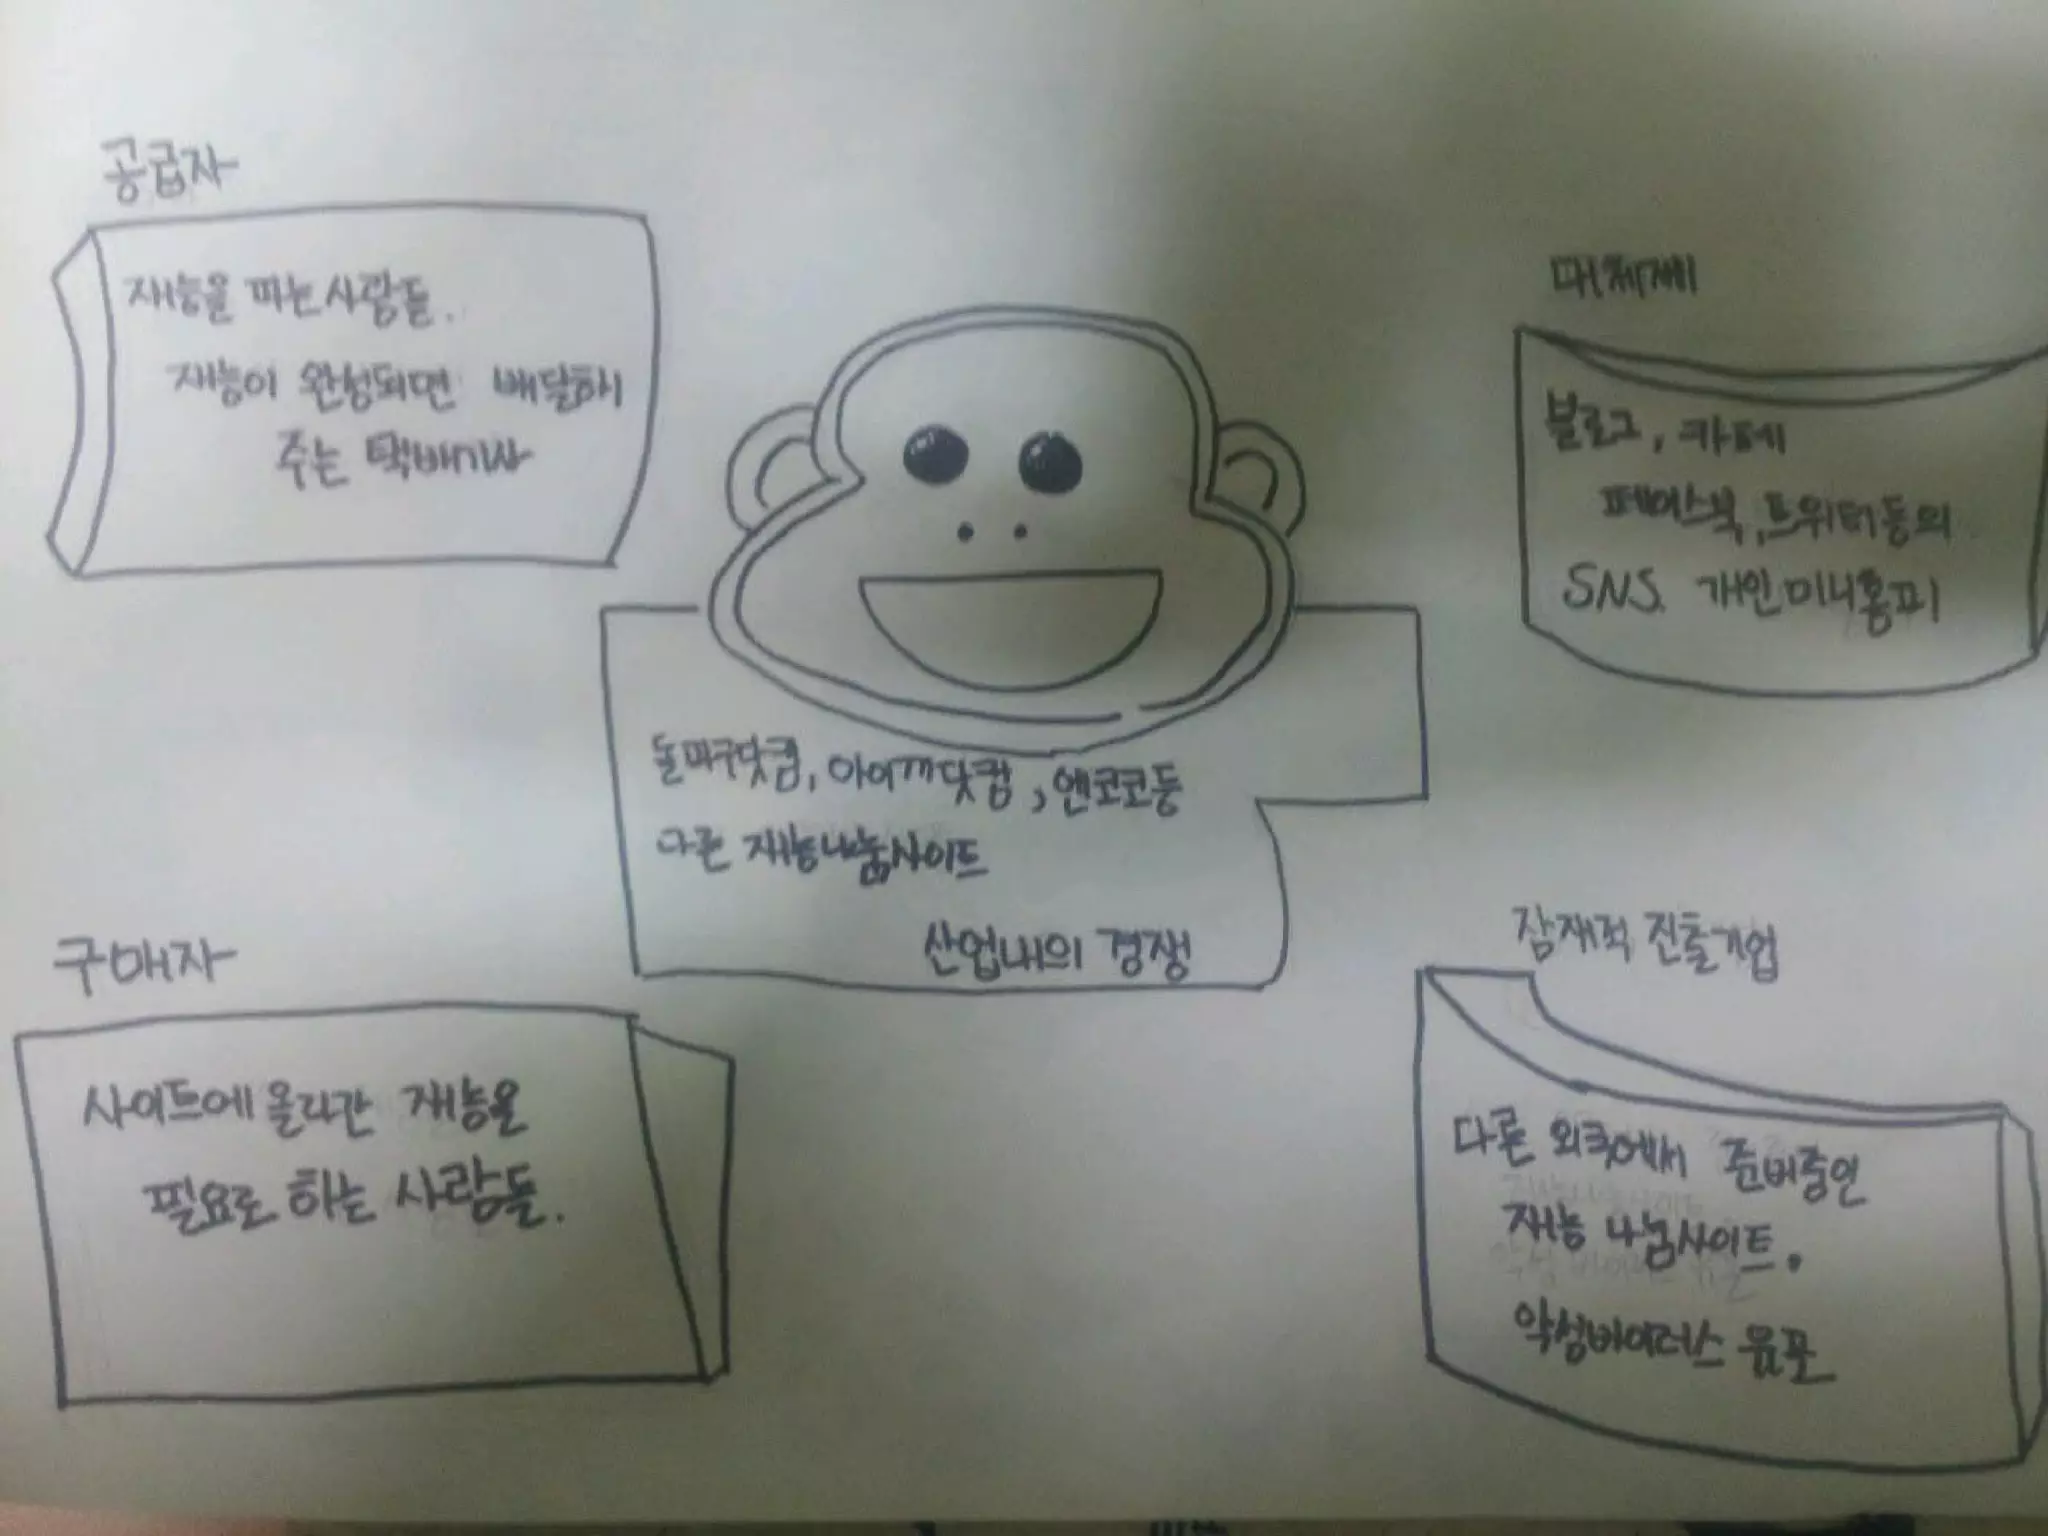 공급자
재능을 파는사람들.
재능이 완성되면 배달해
주는 택배기사
대체제
블로그, 카페
페이스북, 트위터등의
SNS. 개인미니홈피
돌마구닷컴, 아이깨닷컴, 앤코코등
다른 재능나눔사이트
산업내의 경쟁
구매자
사이트에올라간 재능을
필요로 하는 사람들.
잠재적 진출기업
다른 외국에서 준비중인
재능 나눔사이트.
악성바이러스 유포